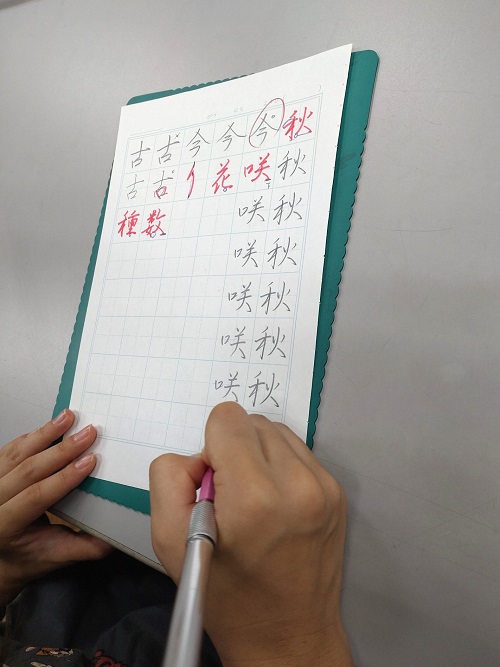 秋秋秋秋秋秋秋
今咲咲咲咲咲咲
今花
今
古古数
古古種